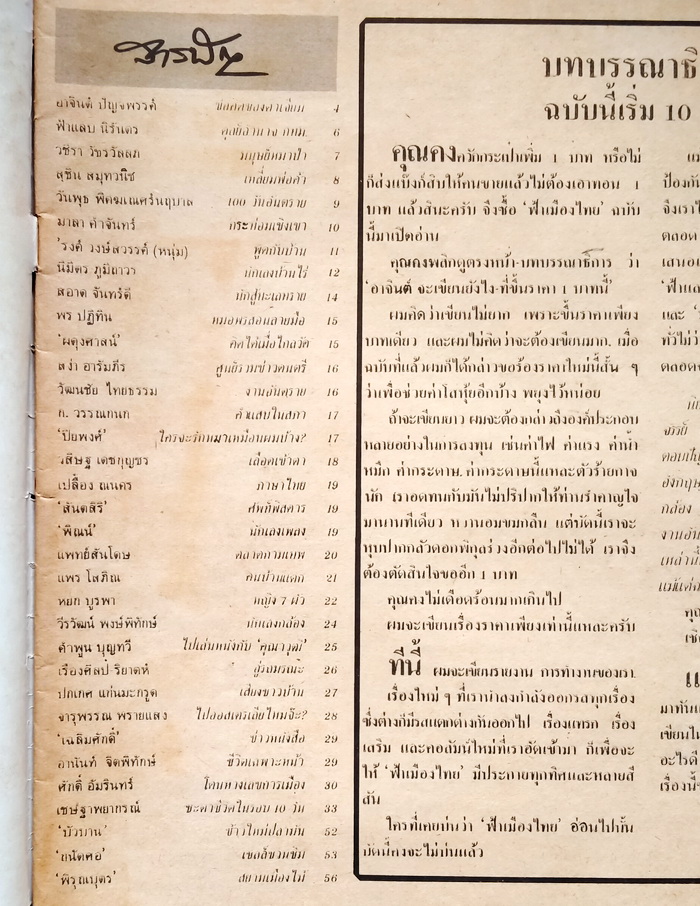 สารบัญ
อาจินต์ ปัญจพรรค์ 4
ฟ้าแลบ นิรันดร 6
วชิรา วัชรวัลลภ มนุษย์หมาป่า 7
สุชิน สมุทวนิช เหลี่ยมพ่อค้า 8
วันพุธ พิฆฒเณศร์นฤบาล 100 วันอันตราย 9
มาลา คำจันทร์ กระท่อมเชิงเขา 10
'รงค์ วงษ์สวรรค์ (หนุ่ม) พูดกับบ้าน 11
นิมิตร ภูมิถาวร นักเลงบ้านไร่ 12
สอาด จันทร์ดี นักสู้ทะเลทราย 14
พร ปฏิทิน หมอพรสอนลายมือ 15
'ผดุงศาสน์' คิดได้เมื่อใกล้วัด 15
สง่า อารัมภีร ศูนย์รวมข่าวดนตรี 16
วัฒนชัย ไทยธรรม งานอันตราย 16
ก. วรรณกนก คำแสบในสภา 17
'ปิยพงศ์' ใครจะรักเมาเหมือนผมบ้าง? 17
วสิษฐ เดชกุญชร เลือดเข้าตา 18
เปลื้อง ณนคร ภาษาไทย 19
'สันตสิริ' ศัพท์พิสดาร 19
'พิณน์' นักเลงเพลง 19
แพทย์สันโดษ ตลาดกามเทพ 20
แพร โสภิณ คนป่าแดด 21
หยก บูรพา หญิง 7 ผัว 22
วีรวัฒน์ พงษ์พิทักษ์ นักเลงกล้อง 24
คำพูน บุญทวี ไปเล่นหนังกับ 'คุณาวุฒิ' 25
เรืองศิลป์ ริยาดห์ 26
ปกเกศ แก่นมะกรูด เสียงชาวบ้าน 27
จารุพรรณ พรายแสง ไปออสเตรเลียไหมจ๊ะ? 28
'เฉลิมศักดิ์' ข่าวหนังสือ 29
อานันท์ จิตพิทักษ์ ชีวิตเฉพาะหน้า 29
ศักดิ์ อัมรินทร์ โดนทางเลขการเมือง 30
เชษฐาพยากรณ์ ชะตาชีวิตในรอบ 10 วัน 33
'บัวบาน' ข้าวใหม่ปลามัน 52
'ถนัดศอ' เชลล์ชวนชิม 53
'พิรุณบุตร' สยามเมืองไม้ 56
บทบรรณาธิ
ฉบับนี้เริ่ม 10
คุณคงควักกระเป๋าเพิ่ม 1 บาท หรือไม่
ก็ส่งแบ็งก์สิบให้คนขายแล้วไม่ต้องเอาทอน 1
บาท แล้วสินะครับ จึงซื้อ 'ฟ้าเมืองไทย' ฉบับ
นี้มาเปิดอ่าน
คุณคงพลิกดูตรงหน้า-บทบรรณาธิการ ว่า
'อาจินต์ จะเขียนยังไง-ที่ขึ้นราคา 1 บาทนี้'
ผมคิดว่าเขียนไม่ยาก เพราะขึ้นราคาเพียง
บาทเดียว และผมไม่คิดว่าจะต้องเขียนมาก. เมื่อ
ฉบับที่แล้วผมก็ได้กล่าวขอร้องราคาใหม่นี้สั้น ๆ
ว่าเพื่อช่วยค่าโสหุ้ยอีกบ้าง พยุงไว้หน่อย
ถ้าจะเขียนยาว ผมจะต้องกล่าวถึงองค์ประกอบ
หลายอย่างในการลงทุน เช่นค่าไฟ ค่าแรง ค่าน้ำ
หมึก ค่ากระดาษ. ค่ากระดาษนี้แหละตัวร้ายกาจ
นัก เราอดทนกับมันไม่ปริปากให้ท่านรำคาญใจ
มานานทีเดียว หวานอมขมกลืน แต่บัดนี้เราจะ
หุบปากกลัวดอกพิกุลร่วงอีกต่อไปไม่ได้ เราจึง
ต้องตัดสินใจขออีก 1 บาท
คุณคงไม่เดือดร้อนมากเกินไป
ผมจะเขียนเรื่องราคาเพียงเท่านี้แหละครับ
ทีนี้ ผมจะเขียนรายงาน การทำงานของเรา.
เรื่องใหม่ ๆ ที่เรานำลงกำลังออกรสทุกเรื่อง
ซึ่งต่างก็มีรสแตกต่างกันออกไป เรื่องแทรก เรื่อง
เสริม และคอลัมน์ใหม่ที่เราอัดเข้ามา ก็เพื่อจะ
ให้ 'ฟ้าเมืองไทย' มีประกายทุกทิศและหลายสี
สัน
ใครที่เคยบ่นว่า 'ฟ้าเมืองไทย' อ่อนไปนั้น
บัดนี้คงจะไม่บ่นแล้ว
ป้องกัน
จึงเราไ
ตลอด
เสนอเ
'ฟ้าเม
และ '
ทั่วไม่ว่
ตลอดจ
จรรย์
ตอบเป็น
อังกฤษ
กล้อง
งานอัน
เหล่านี้
แม้แต่
คุณ
เชื่
มาทัน
เขียนไม
อะไรดี
เรื่องนี้-